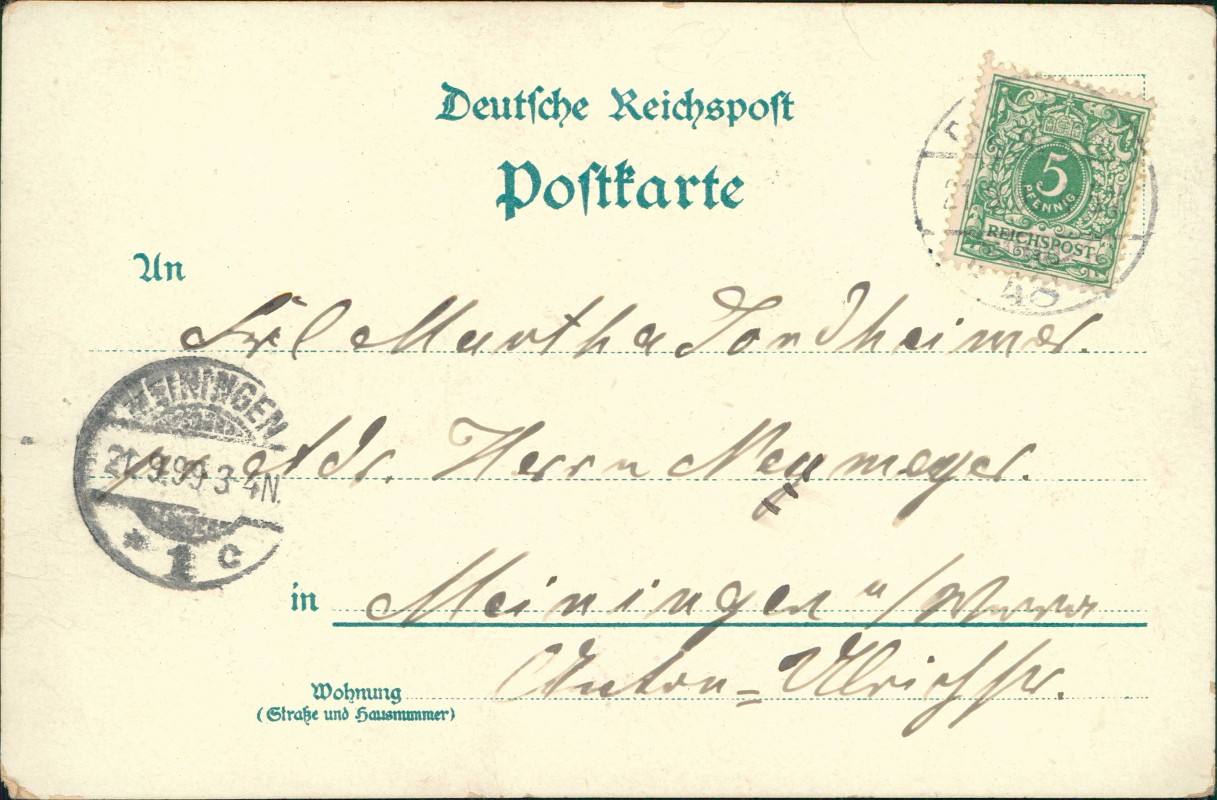 Deutsche Reichspost
Postkarte
5
PFENNIG
REICHSPOST
48
An
Frl Martha Sondheimer.
MEININGEN
21.9.99.3-4N.
* 1 c
Adr. Herrn Neumeyer.
in Meiningen a/Werra
Wohnung
(Straße und Hausnummer)
Anton-Ulrichstr.